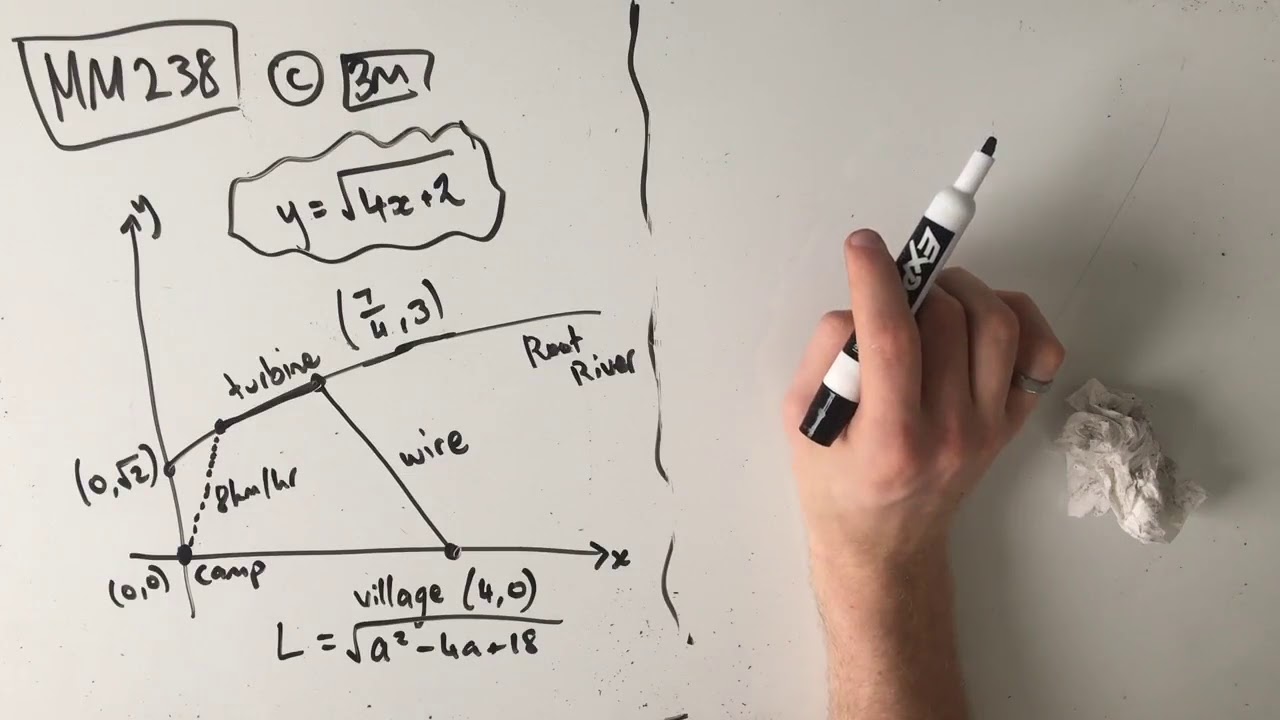 MM238 © 3M
y = √4x+2
y
(7/4, 3)
turbine
Root
River
wire
(0,√2)
8km/hr
x
(0,0) camp
village (4,0)
L = √a²-4a+18
EXPO